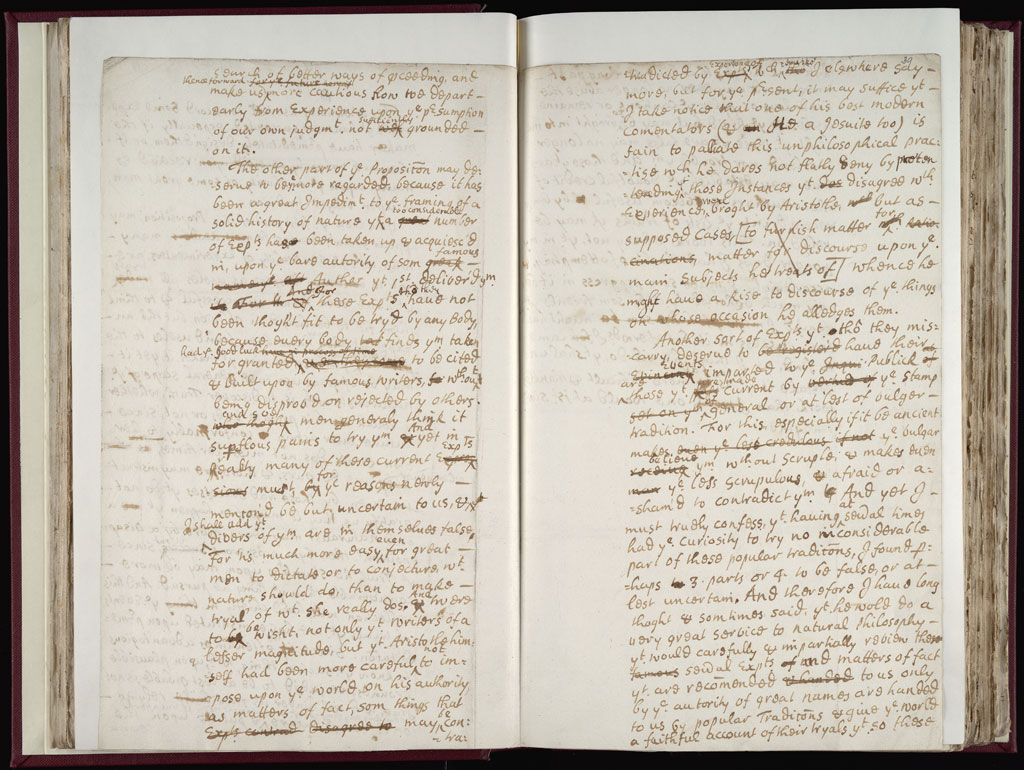 Search of better ways of pceeding, and
thenceforward for ye future
make us more cautious how we depart-
early from Experience upon ye pesumption
of our own judgmt. not sufficiently grounded-
on it.
The other part of ye Proposition may de-
serve to be ye more regarded, because it has
been a great Impedimt to ye framing of a
solid history of nature yt a too considerable number
of Expts have been taken up & acquiesc'd
in, upon ye bare autority of som famous
Author yt 1st deliver'd ym.
And these Expts have not
been thoght fit to be try'd by any body,
because every body finds ym taken
had ye good luck
for granted to be cited
& built upon by famous writers, wthout
being disprov'd or rejected by others.
and so
men generaly think it
supflous pains to try ym And yet in
Realty many of these current Expts
must for ye reasons newly
mention'd be but uncertain to us, &
I shall add yt
divers of ym are in themselves false,
For 'tis much more easy even for great-
men to dictate or to conjecture wt
nature should do, than to make-
tryal of wt she really dos. And twere
to be wisht, not only yt writers of a
lesser magnitude, but yt Aristotle him-
self had been more careful not to im-
pose upon ye world on his authority
as matters of fact, som things that
Expts contrad disagree to may be con-
-tra-
39
tradicted by Experience I elsewhere say-
more, but for ye psent, it may suffice yt-
I take notice that one of his best modern
Comentators (& He a Jesuite too) is
fain to palliate this unphilosophical prac-
tise wch he dares not flatly deny by pten
tending, those Instances yt disagree wth
Experience, broght by Aristotle, but as-
supposed Cases, [to furnish matter for
matter for discourse upon ye
main subjects he treats of] whence he
might have a rise to discourse of ye things
on whose occasion he alledges them.
Another sort of Expts yt tho they mis-
carry, deserve to have their
events imparted to ye Publick
as those yt are made Current by ye stamp
set on ym general or at lest of vulger-
tradition. For this, especially if it be ancient
makes even ye less credulous if not ye vulgar
believe ym wthout scruple, & makes even
ye less scrupulous, afraid or a-
-sham'd to contradict ym. And yet I-
must truely confess, yt having at sevral times
had ye curiosity to try no inconsiderable
part of these popular traditions, I found p-
-haps 3. parts or 4. to be false, or at-
lest uncertain. And therefore I have long
thoght & somtimes said, yt he wold do a
very great service to natural Philosophy-
yt would carefully & impartially review the
famous sevral Expts and matters of fact
yt are recomended & handed to us only
by ye autority of great names are handed
to us by popular Traditions & give ye world
a faithful account of their tryals yt so these